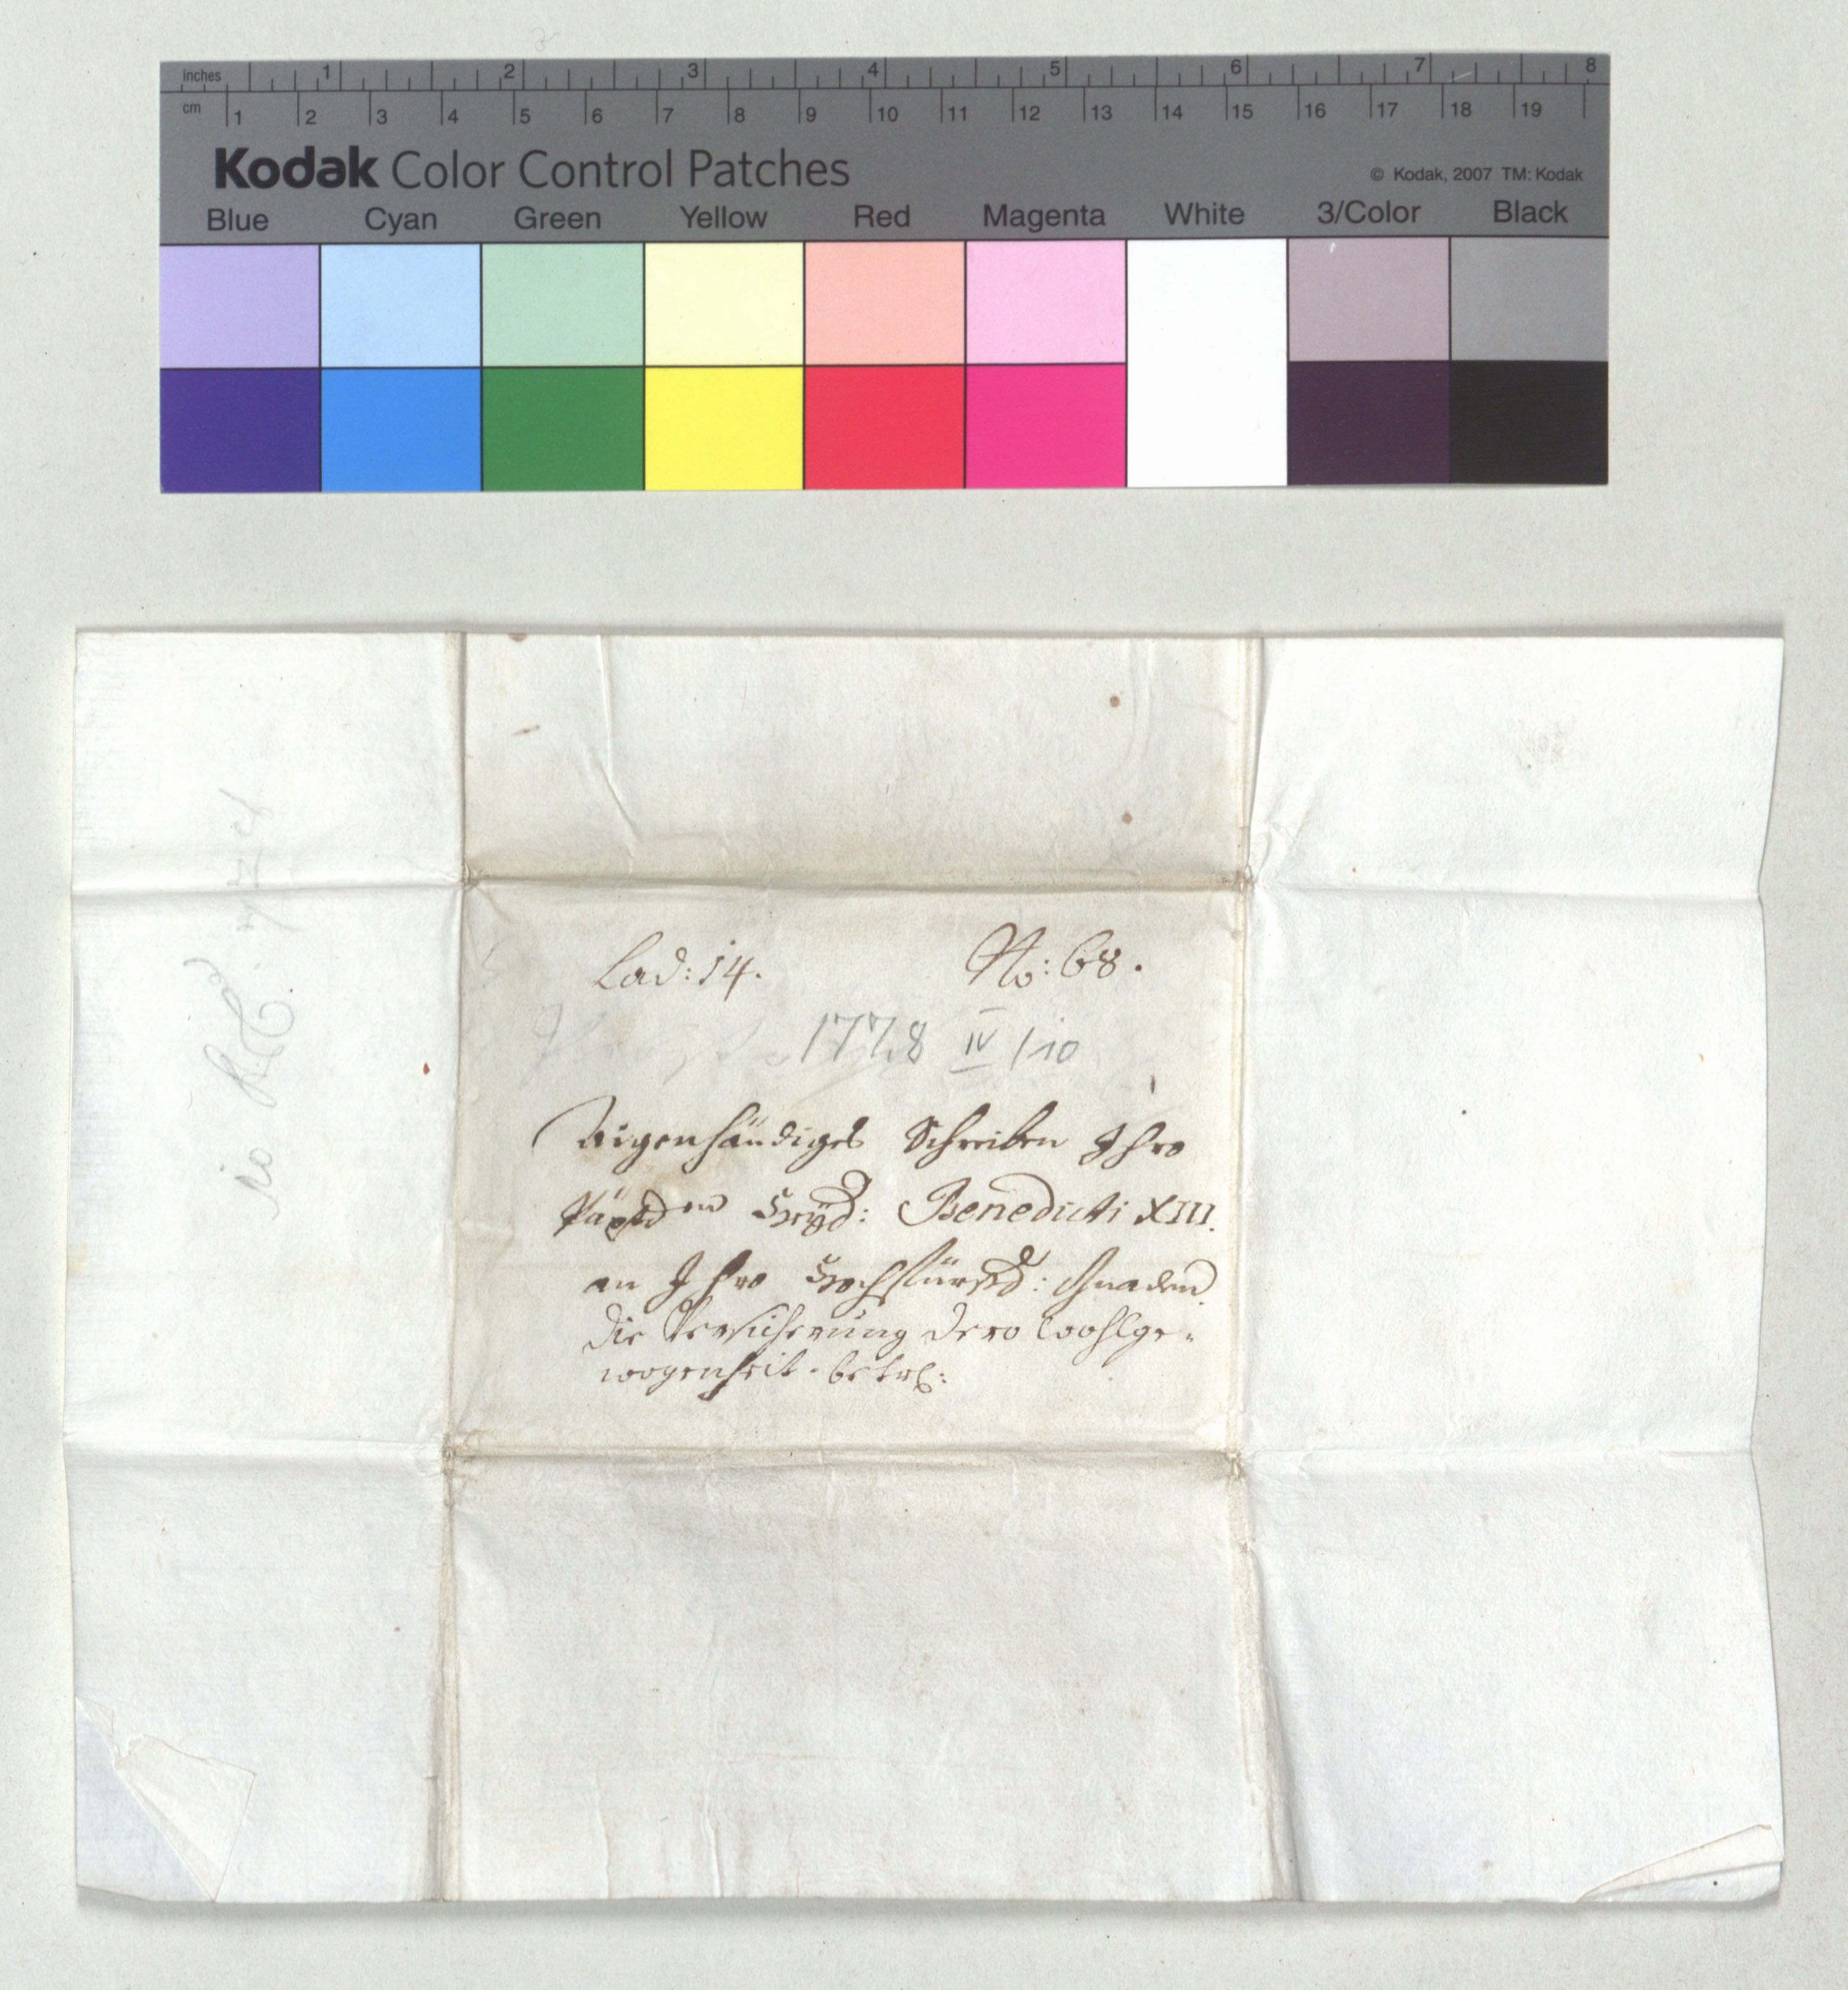 inches 1 2 3 4 5 6 7 8
cm 1 2 3 4 5 6 7 8 9 10 11 12 13 14 15 16 17 18 19
Kodak Color Control Patches
© Kodak, 2007 TM: Kodak
Blue Cyan Green Yellow Red Magenta White 3/Color Black
Lad: 14. No: 68.
1728 IV / 10
Aigenhändiges Schreiben Ihro
Benedicti XIII.
an Ihro Hochfürstl: Gnaden
die Versicherung dero wohlge-
wogenheit betrl: